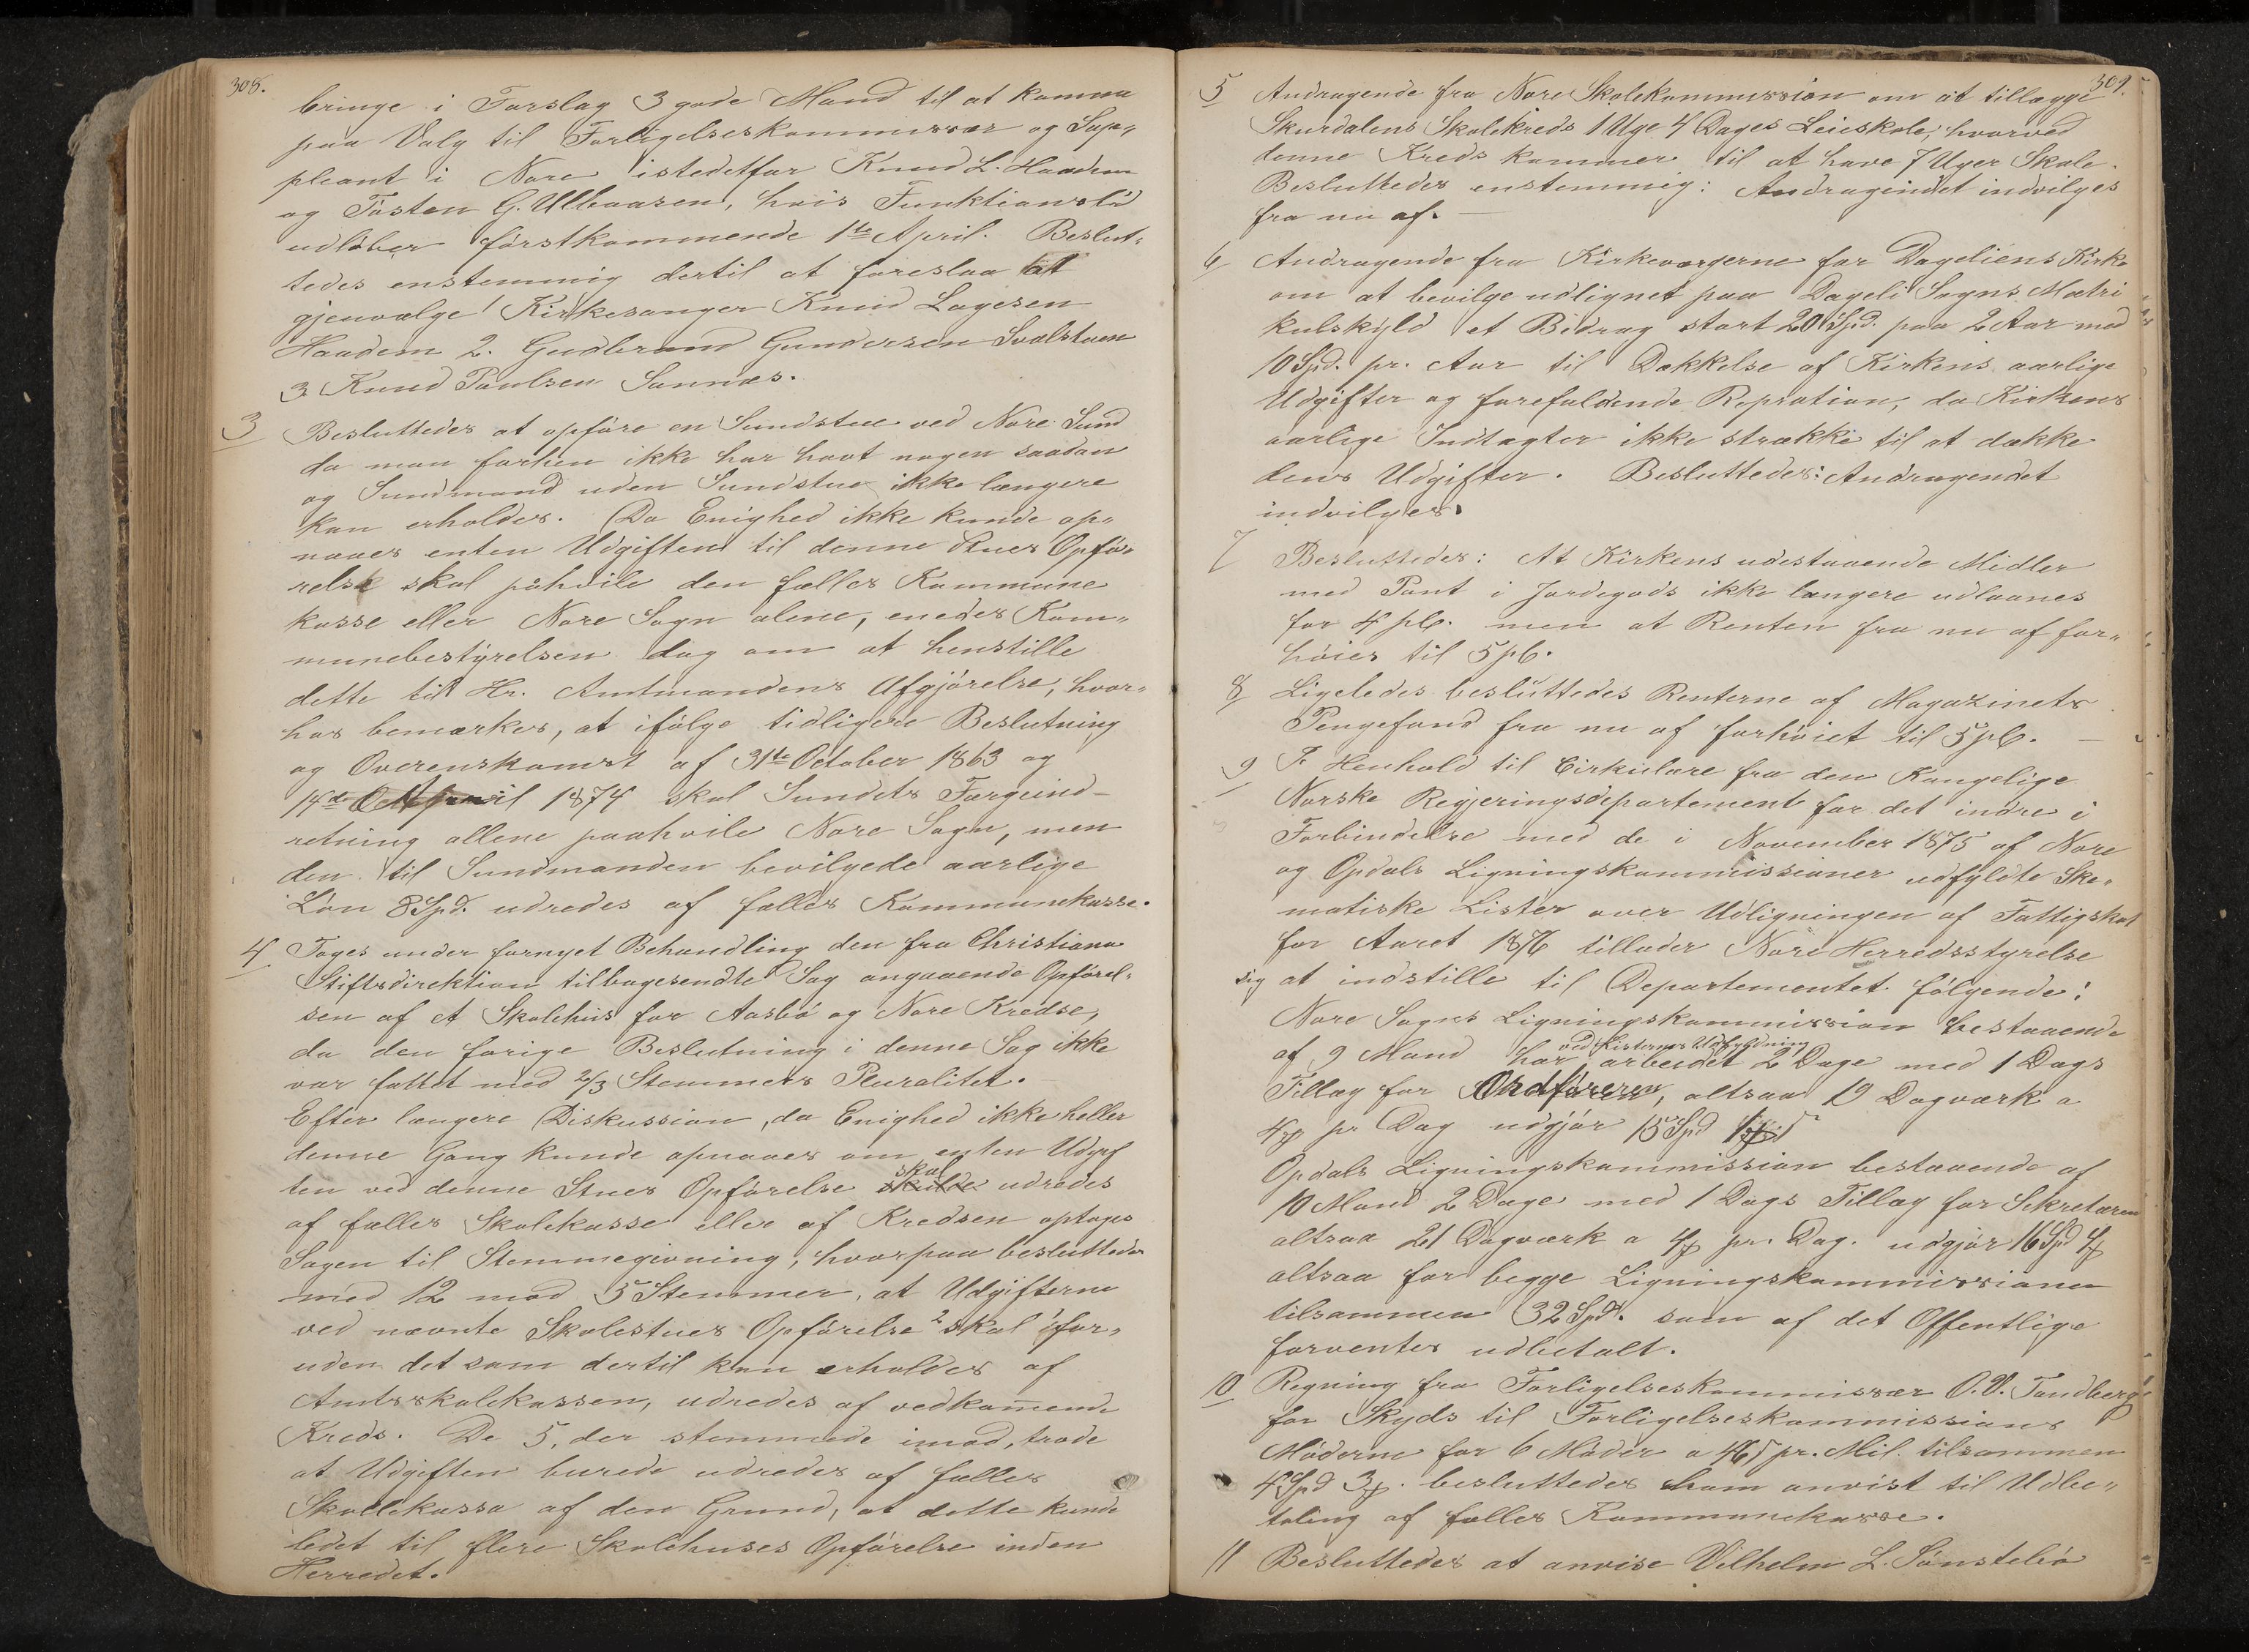 308.
bringe i Forslag 3 gode Mænd til at komme
paa Valg til Forligelseskommissær og Sup„
pleant i Nore istedetfor Knud L. Haadem
og Tosten G. Ulbaasen, hvis Funktionstid
udløber førstkommende 1ste April. Beslut„
tedes enstemmig dertil at foreslaa at
gjenvælge 1 Kirkesanger Knud Lagesen
Haadem 2. Gudbrand Gundersen
3 Knud Paulsen Sannæs.
3 Besluttedes at opføre en Sundstue ved Nore Sund
da man forhen ikke har havt nogen saadan
og Sundmand uden Sundstue ikke længere
kan erholdes. Da Enighed ikke kunde op„
naaes enten Udgiften til denne Stues Opfø„
relse skal påhvile den fælles Kommune
kasse eller Nore Sogn alene, enedes Kom„
munebestyrelsen dog om at henstille
dette til Hr. Amtmandens Afgjørelse, hvor„
hos bemærkes, at ifølge tidligere Beslutning
og Overenskomst af 31te October 1863 og
14de April 1874 skal Sundets Færgeind-
retning allene paahvile Nore Sogn, men
den til Sundmanden bevilgede aarlige
Løn 8 Spd. udredes af fælles Kommunekasse.
4 Toges under fornyet Behandling den fra Christiania
Stiftsdirektion tilbagesendte Sag angaaende Opførel„
sen af et Skolehus for Aasbø og Nore Kredse,
da den forige Beslutning i denne Sag ikke
var fattet med 2/3 Stemmers Pluralitet.
Efter længere Diskussion, da Enighed ikke heller
denne Gang kunde opnaaes om enten Udgif
ten ved denne Stues Opførelse skulde skal udredes
af fælles Skolekasse eller af Kredsen optoges
Sagen til Stemmegivning, hvorpaa besluttedes
med 12 mod 5 Stemmer, at Udgifterne
ved nævnte Skolestues Opførelse 2 skal 1 for„
uden det som dertil kan erholdes af
Amtsskolekassen, udredes af vedkommende
Kreds. De 5, der stemmede imod, trode
at Udgiften burede udredes af fælles
Skolekasse af den Grund, at dette kunde
ledet til flere Skolehuses Opførelse inden
Herredet.
309.
5 Andragende fra Nore Skolekommission om at tillægge
Skurdalens Skolekreds 1 Uge 4 Dages Leieskole, hvorved
denne Kreds kommer til at have 7 Uger Skole.
Besluttedes enstemmig: Andragendet indvilges
fra nu af. —
6 Andragende fra Kirkeværgerne for Dagliens Kirke
om at bevilge udlignet paa Dagali Sogns Matri
kulskyld et Bidrag stort 20 Spd. paa 2 Aar med
10 Spd. pr. Aar til Dækkelse af Kirkens aarlige
Udgifter og forefaldende Repration, da Kirkens
aarlige Indtægter ikke strække til at dække
dens Udgifter. Besluttedes: Andragendet
indvilges.
7 Besluttedes: At Kirkens udestaaende Midler
med Pant i Jordegods ikke længere udlaanes
for 4 pC. men at Renten fra nu af for„
høies til 5 pC.
8 Ligeledes besluttedes Renterne af Magazinets
Pengefond fra nu af forhøiet til 5 pC. —
9 I Henhold til Cirkulære fra den Kongelige
Norske Regjeringsdepartement for det indre i
Forbindelse med de i November 1875 af Nore
og Opdals Ligningskommissioner udfyldte Ske„
matiske Lister over Udligningen af Fattigskat
for Aaret 1876 tillader Nore Herredsstyrelse
sig at indstille til Departementet følgende:
Nore Sogns Ligningskommission bestaaende
af 9 Mand har ved Listernes Udfyldning arbeidet 2 Dage med 1 Dags
Tillæg for Ordføreren, altsaa 19 Dagværk a
4 ₰ pr Dag udgjør 15 Spd
Opdals Ligningskommission bestaaende af
10 Mand 2 Dage med 1 Dags Tillæg for Sekretæren
altsaa 21 Dagværk a 4 ₰ pr. Dag. udgjør 16 Spd 4 ₰
altsaa for begge Ligningskommissioner
tilsammen 32 Spd. som af det Offentlige
forventes udbetalt.
10 Regning fra Forligelseskommissær O. O. Tandberg
for Skyds til Forligelseskommissions
Møderne for 6 Møder a pr. Mil tilsammen
4 Spd 3 ₰. besluttedes ham anvist til Udbe„
taling af fælles Kommunekasse.
11 Besluttedes at anvise Vilhelm L. Sønstebø